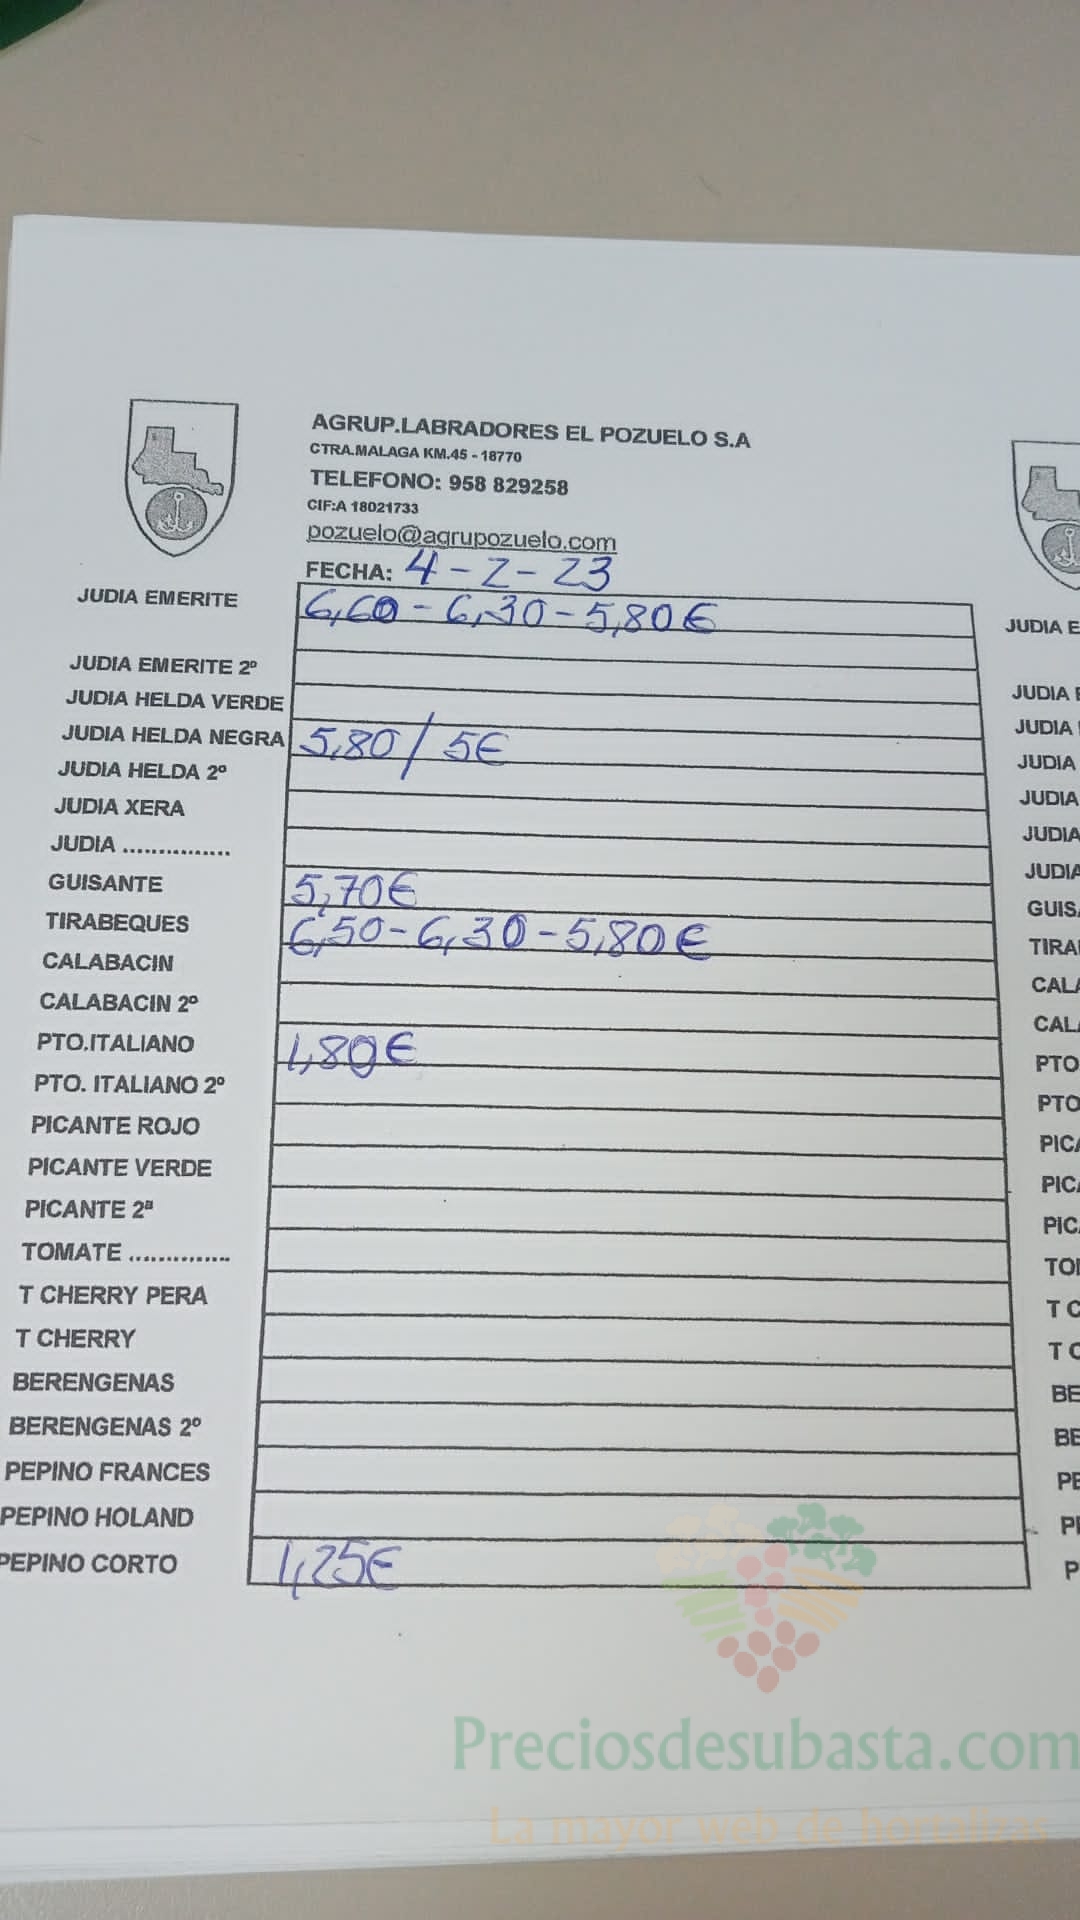 AGRUP.LABRADORES EL POZUELO S.A
CTRA.MALAGA KM.45 - 18770
TELEFONO: 958 829258
CIF:A 18021733
pozuelo@agrupozuelo.com
FECHA: 4-2-23
JUDIA EMERITE 6,60-6,30-5,80€
JUDIA EMERITE 2º
JUDIA HELDA VERDE
JUDIA HELDA NEGRA 5,80/5€
JUDIA HELDA 2º
JUDIA XERA
JUDIA ...............
GUISANTE 5,70€
TIRABEQUES 6,50-6,30-5,80€
CALABACIN
CALABACIN 2º
PTO.ITALIANO 1,80€
PTO. ITALIANO 2º
PICANTE ROJO
PICANTE VERDE
PICANTE 2ª
TOMATE ..............
T CHERRY PERA
T CHERRY
BERENGENAS
BERENGENAS 2º
PEPINO FRANCES
PEPINO HOLAND
PEPINO CORTO 1,25€
JUDIA E
JUDIA E
JUDIA
JUDIA
JUDIA
JUDIA
JUDIA
GUISA
TIRA
CALA
CALA
PTO
PTO
PICA
PICA
PIC
TO
T C
T C
BE
BE
PE
P
P
Preciosdesubasta.com
La mayor web de hortalizas